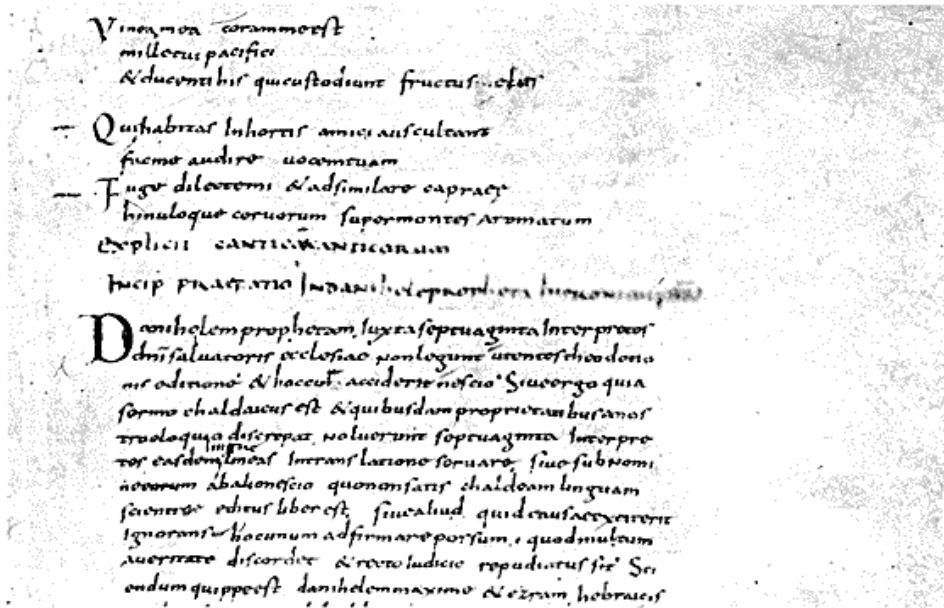 Vinea mea coram me est
mille tui pacifici
& ducenti his qui custodiunt fructus eius
Qui habitas In hortis amici auscultant
fac me audire uocem tuam
Fuge dilecte mi & adsimilare capreae
hinuloque ceruorum super montes aromatum
explicit CANTICA CANTICORUM
INCIP PRAEFATIO IN DANIHELE PROPHETA
Danihelem prophetam Iuxta septuaginta Interpretes
dni saluatoris ecclesiae non legunt utentes theodotio
nis editione & hoc cur acciderit nescio Siue ergo quia
sermo chaldaicus est & quibusdam proprietatibus a nos
tro eloquio discrepat noluerunt septuaginta Interpre
tes easdem lineas In translatione seruare siue sub nomi
ne eorum ab alio nescio quo non satis chaldeam linguam
sciente editus liber est siue aliud quid causae extiterit
Ignorans hoc unum adfirmare possum quod multum
a ueritate discordet & recto Iudicio repudiatus sit Sci
endum quippe est danihelem maxime & ezram hebraicis